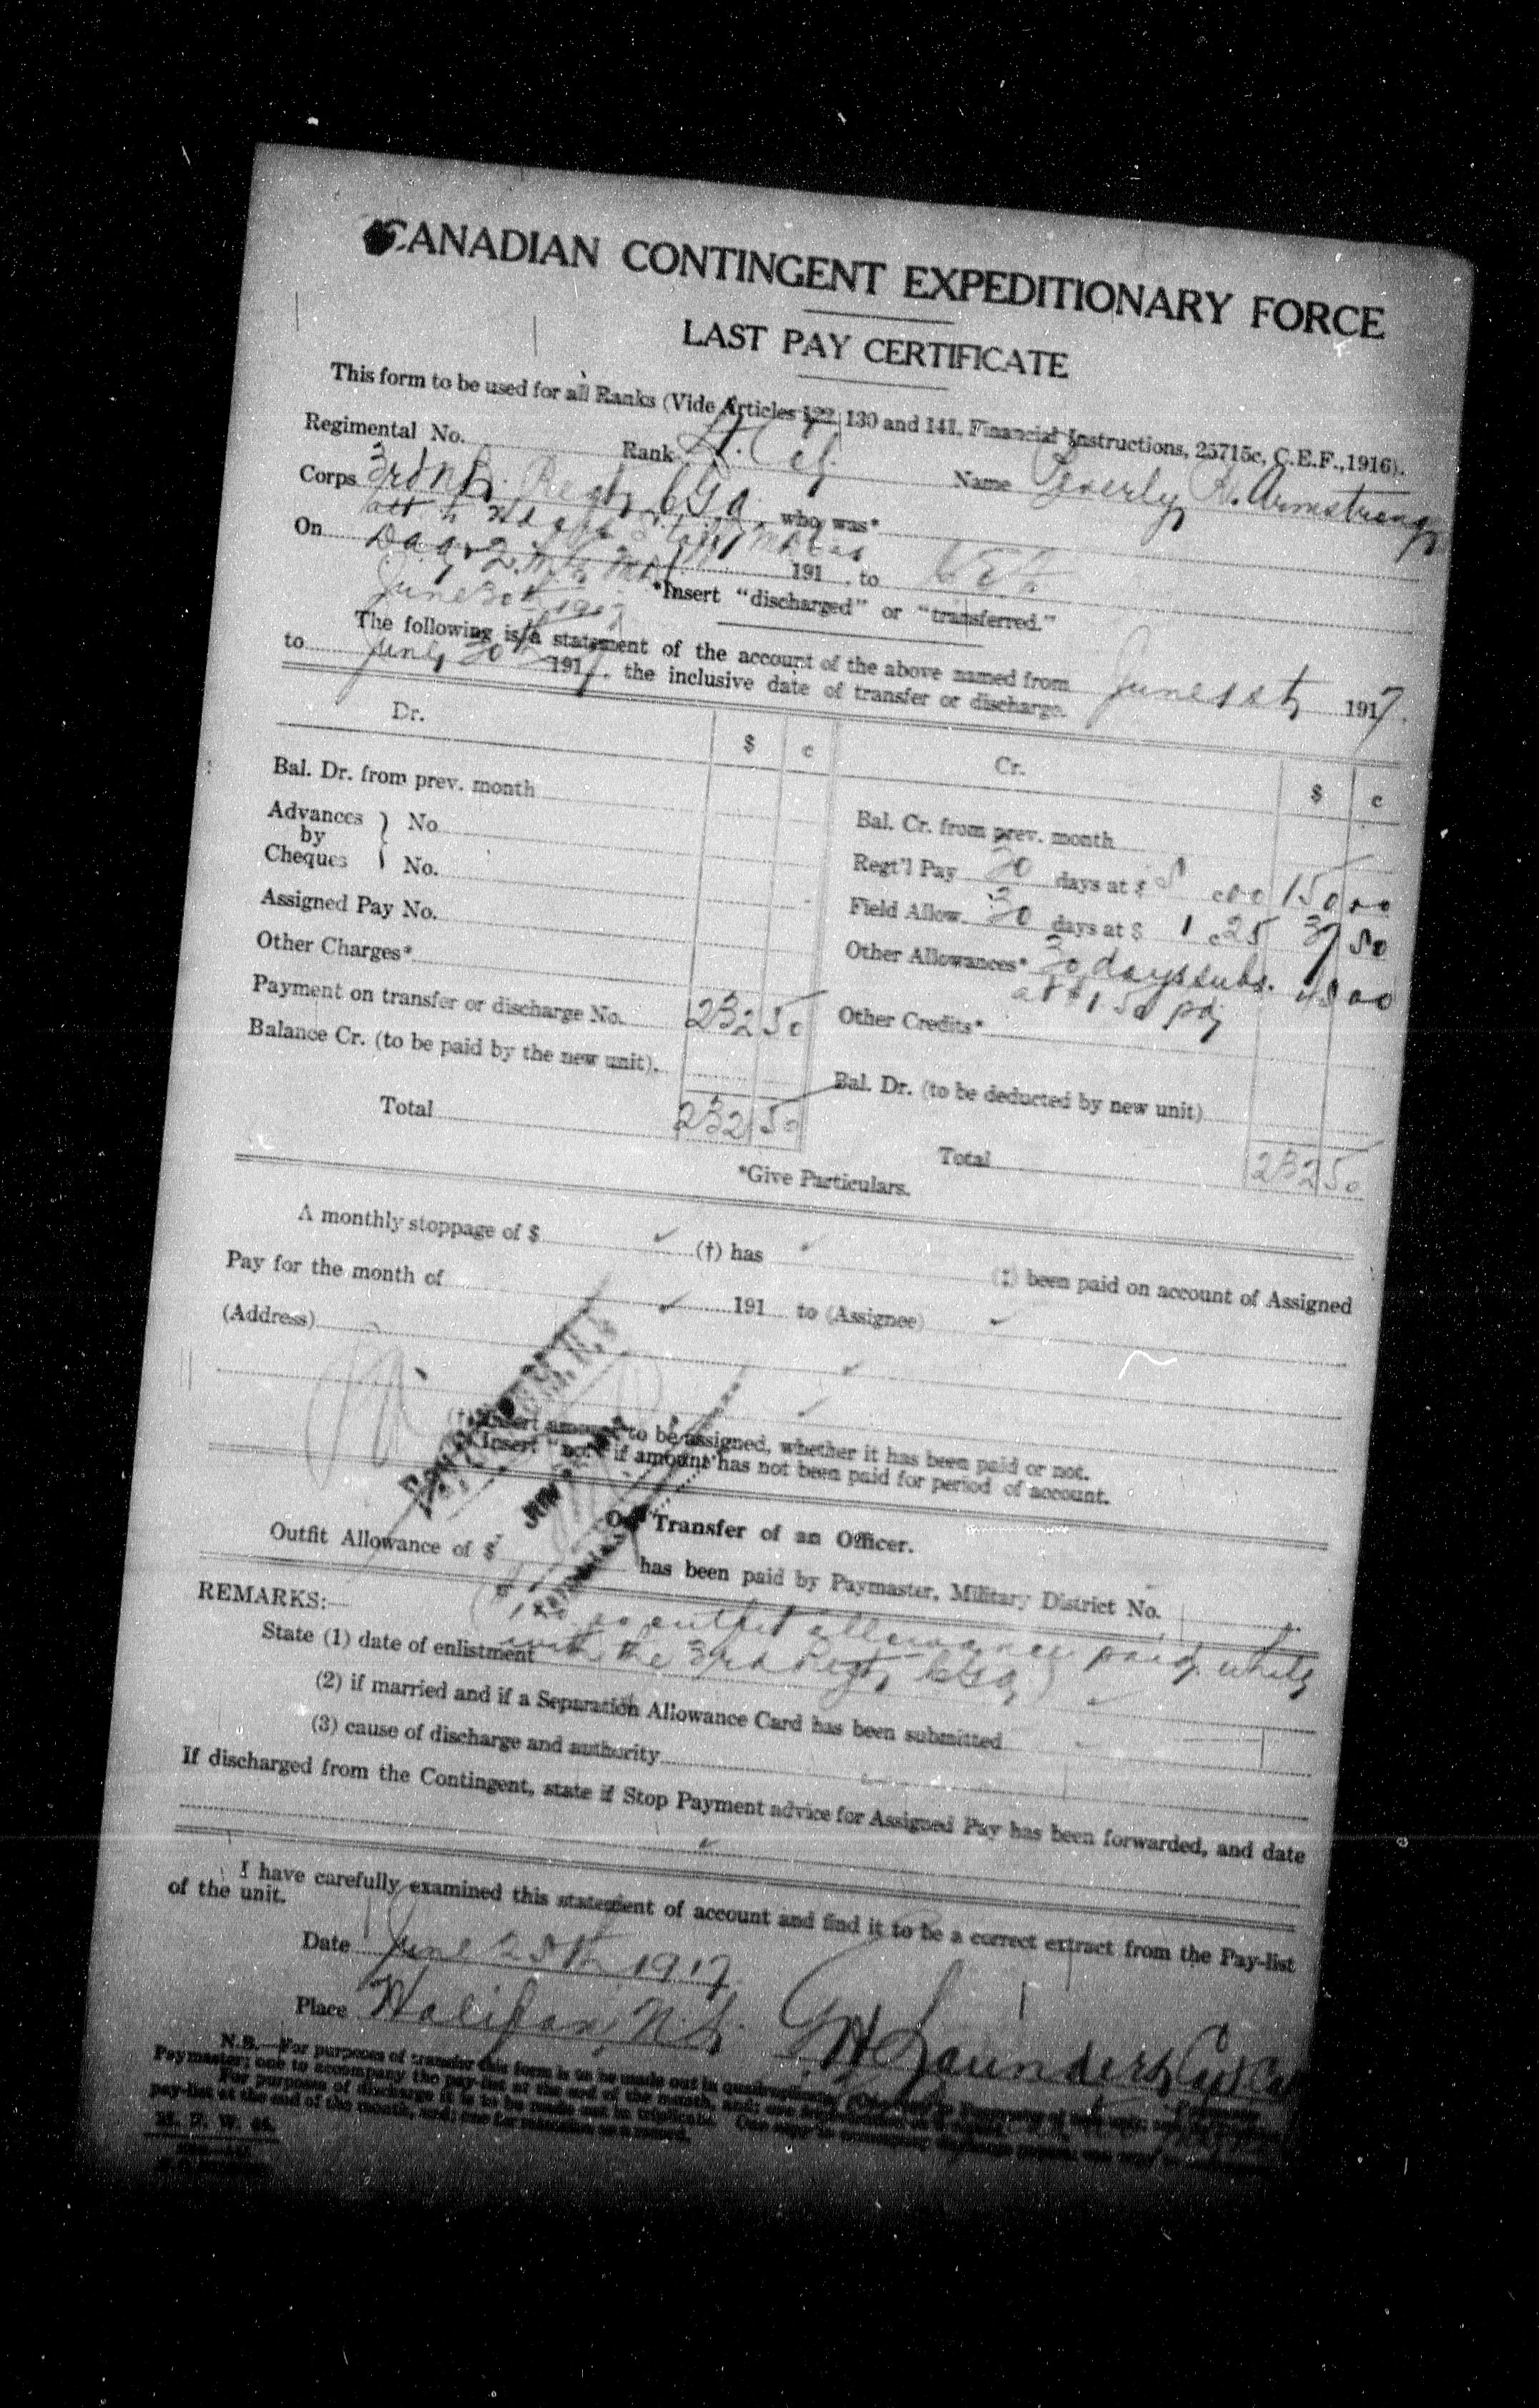 CANADIAN CONTINGENT EXPEDITIONARY FORCE
LAST PAY CERTIFICATE
This form to be used for all Ranks (Vide Articles 127, 130 and 141, Financial Instructions, 25715c, C.E.F., 1916).
Regimental No. Rank Lt. Col. Name Beverly R. Armstrong
Corps 3rd N.B. Regt. C G A. who was*
On 191 to C E F
June 30th 1917 *Insert "discharged" or "transferred."
The following is a statement of the account of the above named from June 1st 1917.
to June 30th 1917, the inclusive date of transfer or discharge.
Dr. $ c Cr. $ c
Bal. Dr. from prev. month
Bal. Cr. from prev. month
Advances by Cheques No.
No.
Regt'l Pay 30 days at $ 5 c00 150 00
Assigned Pay No.
Field Allow. 30 days at $ 1 c.25 37 50
Other Charges*
Other Allowances* 30 days subs. 45 00
at $1.50 pdy
Payment on transfer or discharge No. 232 50
Other Credits*
Balance Cr. (to be paid by the new unit).
Bal. Dr. (to be deducted by new unit)
Total 232 50
Total 232 50
*Give Particulars.
A monthly stoppage of $ (†) has (‡) been paid on account of Assigned
Pay for the month of 191 to (Assignee)
(Address)
(†) Insert amount to be assigned, whether it has been paid or not.
Insert "not" if amount has not been paid for period of account.
JUN
On Transfer of an Officer.
Outfit Allowance of $ has been paid by Paymaster, Military District No.
REMARKS:—
outfit allowance paid while
State (1) date of enlistment with the 3rd Regt C G A)
(2) if married and if a Separation Allowance Card has been submitted
(3) cause of discharge and authority
If discharged from the Contingent, state if Stop Payment advice for Assigned Pay has been forwarded, and date
I have carefully examined this statement of account and find it to be a correct extract from the Pay-list
of the unit.
Date June 25th 1917
Place Halifax, N.S. G H Saunders Capt
N.B.—For purposes of transfer this form is to be made out in quadruplicate
Paymaster; one to accompany the pay-list at the end of the month, and; one
For purposes of discharge it is to be made out in triplicate. One copy to accompany
pay-list at the end of the month, and; one for retention as a record.
M. F. W. 44.